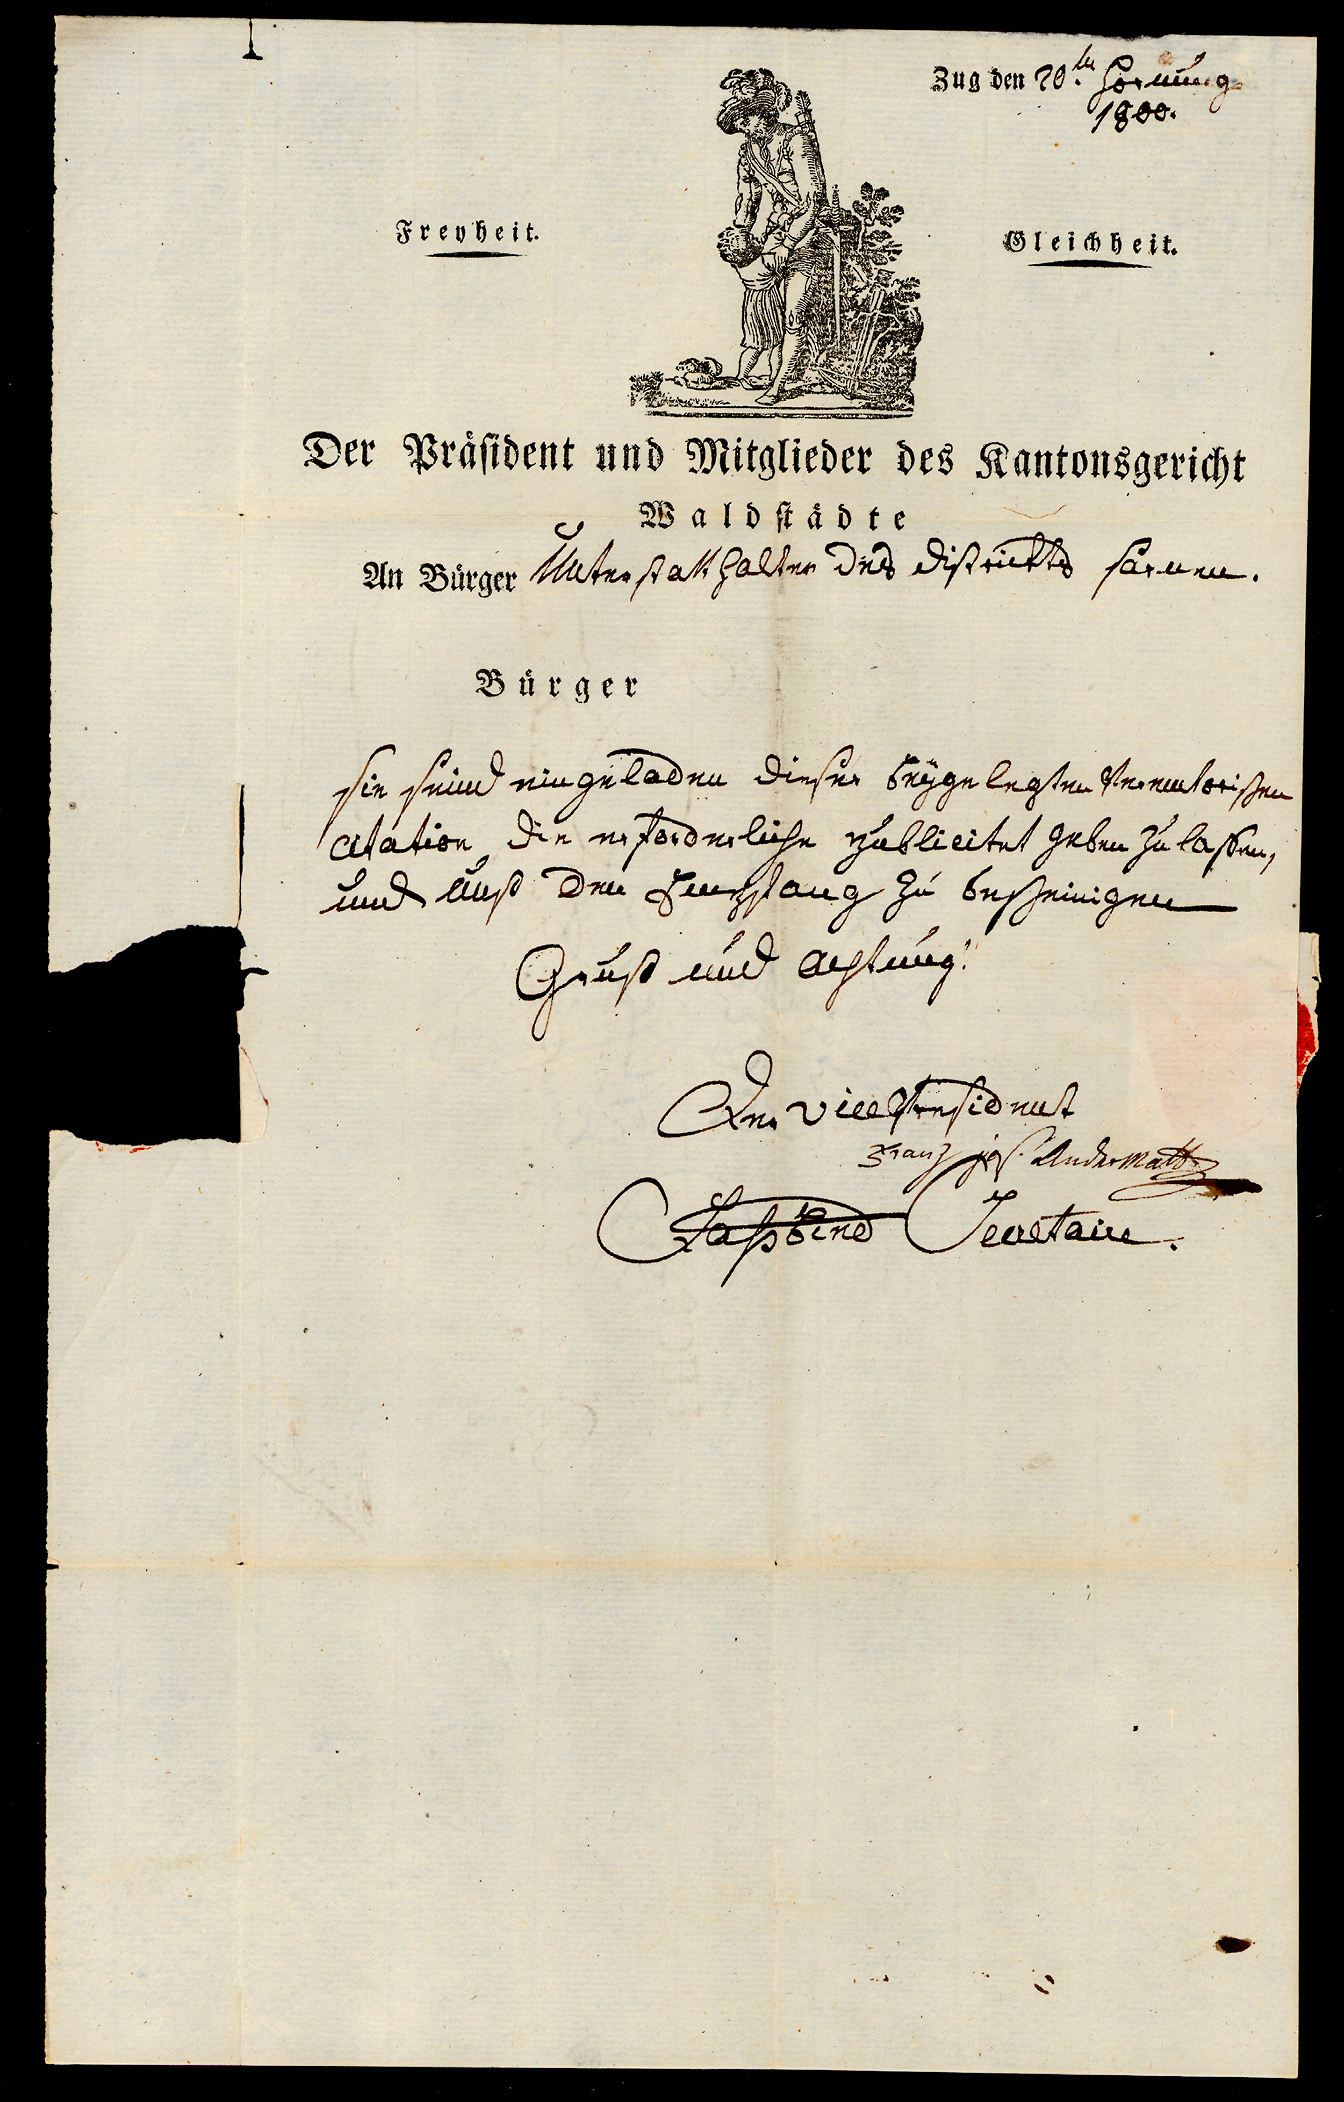 Zug den 20.ten Hornung
1800.
Freyheit.
Gleichheit.
Der Präsident und Mitglieder des Kantonsgericht
Waldstädte
An Bürger Unterstatthalter des Districkts Sarnen.
Bürger
Sie seind eingeladen dieser beÿgelegten Peremtorischen
Citation die erforderliche Publicitet geben zu lassen,
und unß den Empfang zu bescheinigen
Gruß und Achtung!
Der Vice President
Franz Jos. Andermatt
Kaßbend Secretaire.